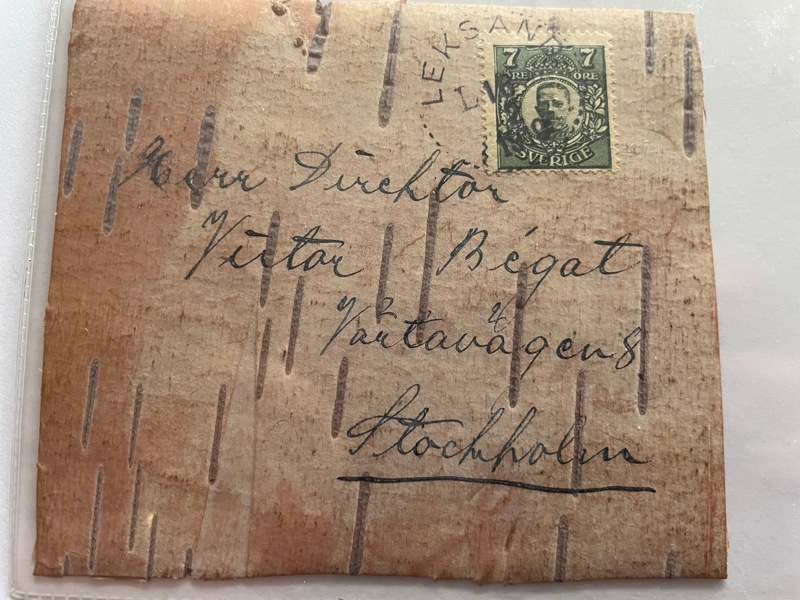 LEKSAND
7 7
ÖRE ÖRE
SVERIGE
Herr Direhtör
Victor Bégat
Värtavägen 8
Stockholm